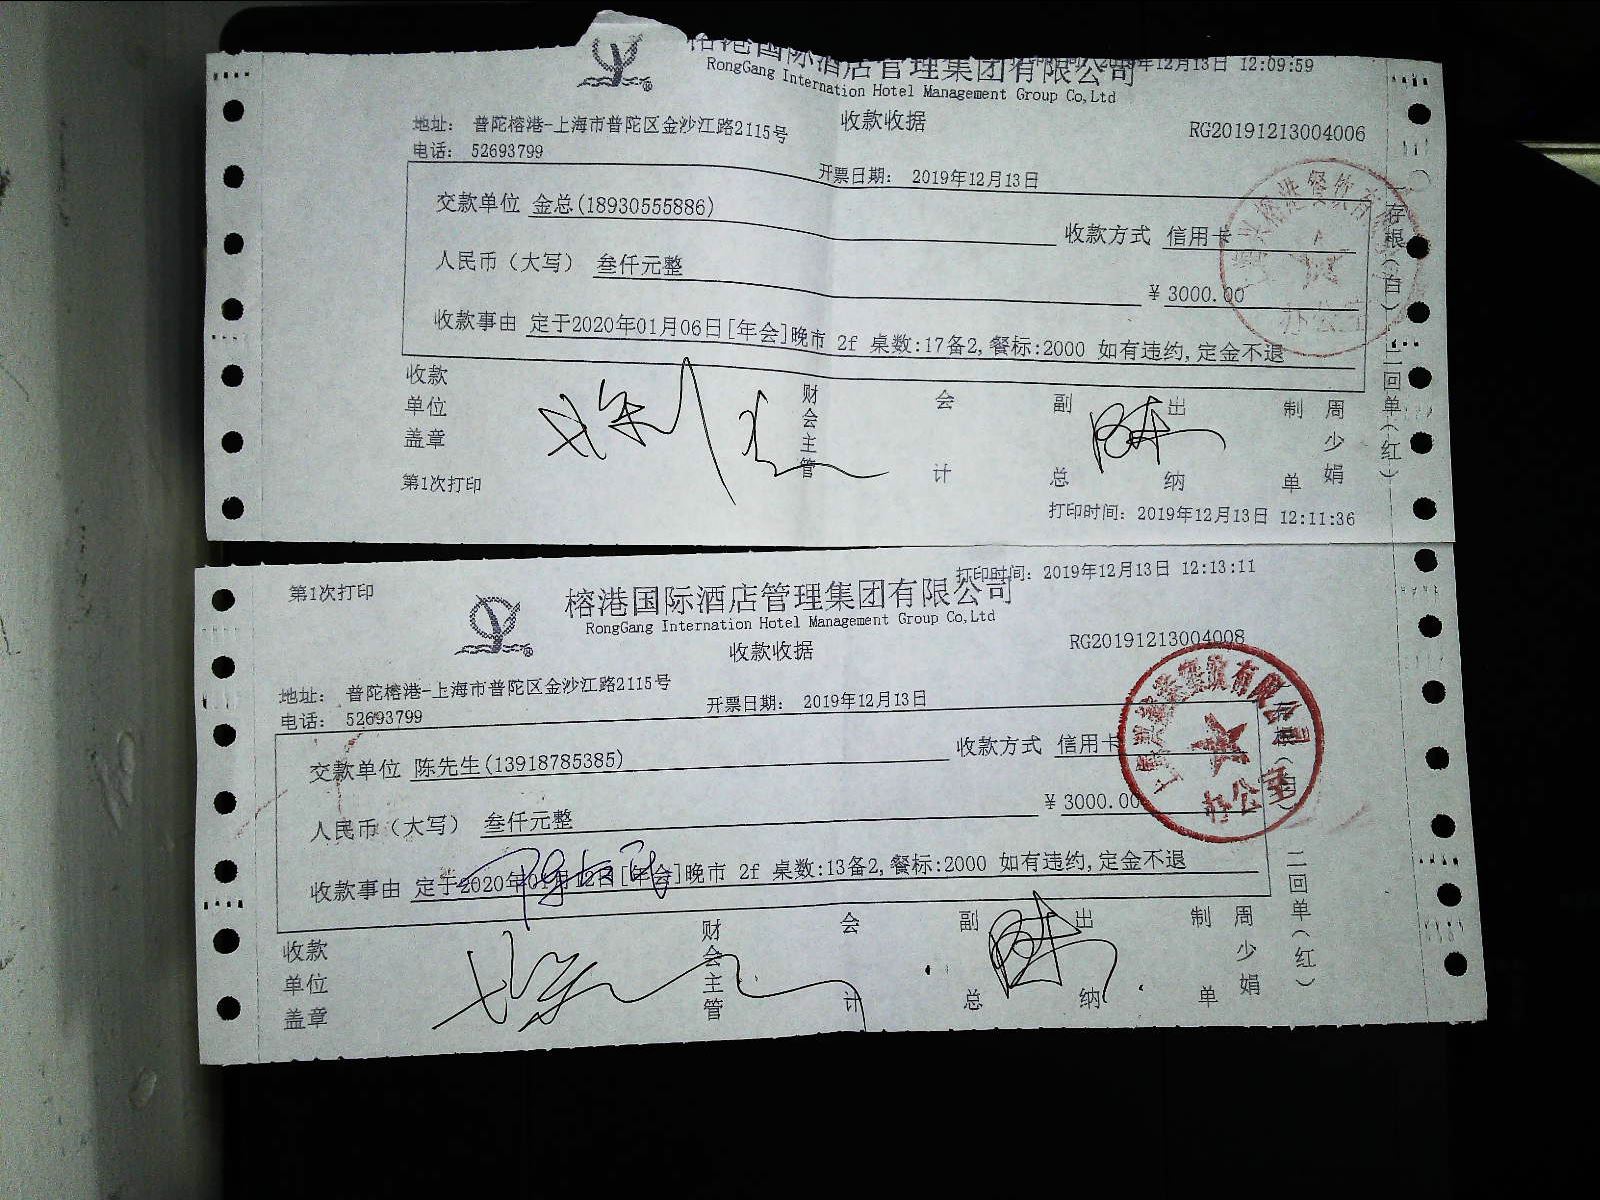 榕港国际酒店管理集团有限公司
2019年12月13日 12:09:59
RongGang Internation Hotel Management Group Co,Ltd
收款收据
RG20191213004006
地址： 普陀榕港-上海市普陀区金沙江路2115号
电话： 52693799
开票日期： 2019年12月13日
交款单位 金总(18930555886)
收款方式 信用卡
人民币（大写） 叁仟元整
¥ 3000.00
收款事由 定于2020年01月06日[年会]晚市 2f 桌数:17备2,餐标:2000 如有违约,定金不退
存根（白）
二回单（红）
办公室
收款单位盖章
财会主管
会计
副总
出纳
制单
周少娟
第1次打印
打印时间: 2019年12月13日 12:11:36
第1次打印
打印时间: 2019年12月13日 12:13:11
榕港国际酒店管理集团有限公司
RongGang Internation Hotel Management Group Co,Ltd
收款收据
RG20191213004008
地址： 普陀榕港-上海市普陀区金沙江路2115号
电话： 52693799
开票日期： 2019年12月13日
交款单位 陈先生(13918785385)
收款方式 信用卡
人民币（大写） 叁仟元整
¥ 3000.00
收款事由 定于2020年01月12日[年会]晚市 2f 桌数:13备2,餐标:2000 如有违约,定金不退
存根（白）
二回单（红）
餐饮有限公司
办公室
收款单位盖章
财会主管
会计
副总
出纳
制单
周少娟